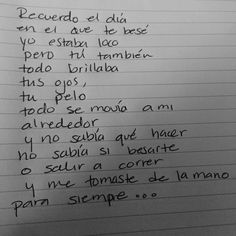 Recuerdo el día
en el que te besé
yo estaba loco
pero tú también
todo brillaba
tus ojos,
tu pelo
todo se movía a mi
alrededor
y no sabía qué hacer
no sabía si besarte
o salir a correr
y me tomaste de la mano
para siempre...